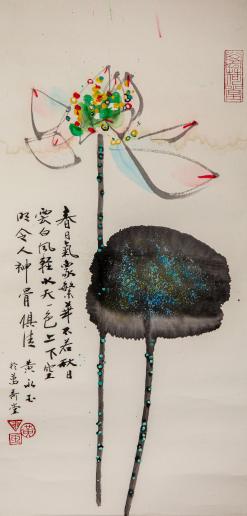 春日氣象繁華不若秋日
雲白風輕水天一色上下空
明令人神骨俱清 黃永玉
於萬荷堂